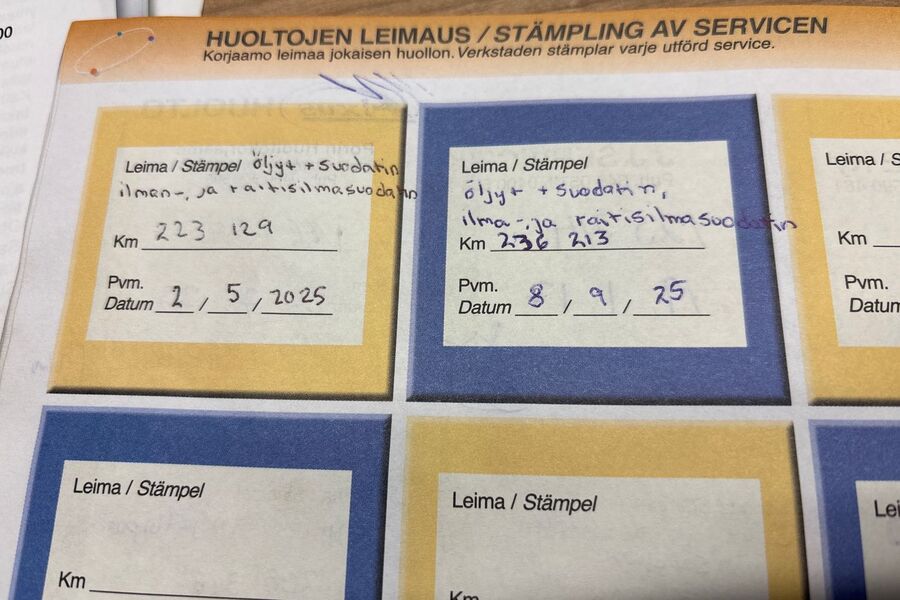 00
HUOLTOJEN LEIMAUS / STÄMPLING AV SERVICEN
Korjaamo leimaa jokaisen huollon. Verkstaden stämplar varje utförd service.
Leima / Stämpel öljyt + suodatin
ilman-, ja raitisilmasuodatin
Km 223 129
Pvm.
Datum 2 / 5 / 2025
Leima / Stämpel
öljyt + suodatin,
ilma-, ja raitisilmasuodatin
Km 236 213
Pvm.
Datum 8 / 9 / 25
Leima / S
Km
Pvm.
Datum
Leima / Stämpel
Km
Leima / Stämpel
Km
Lei